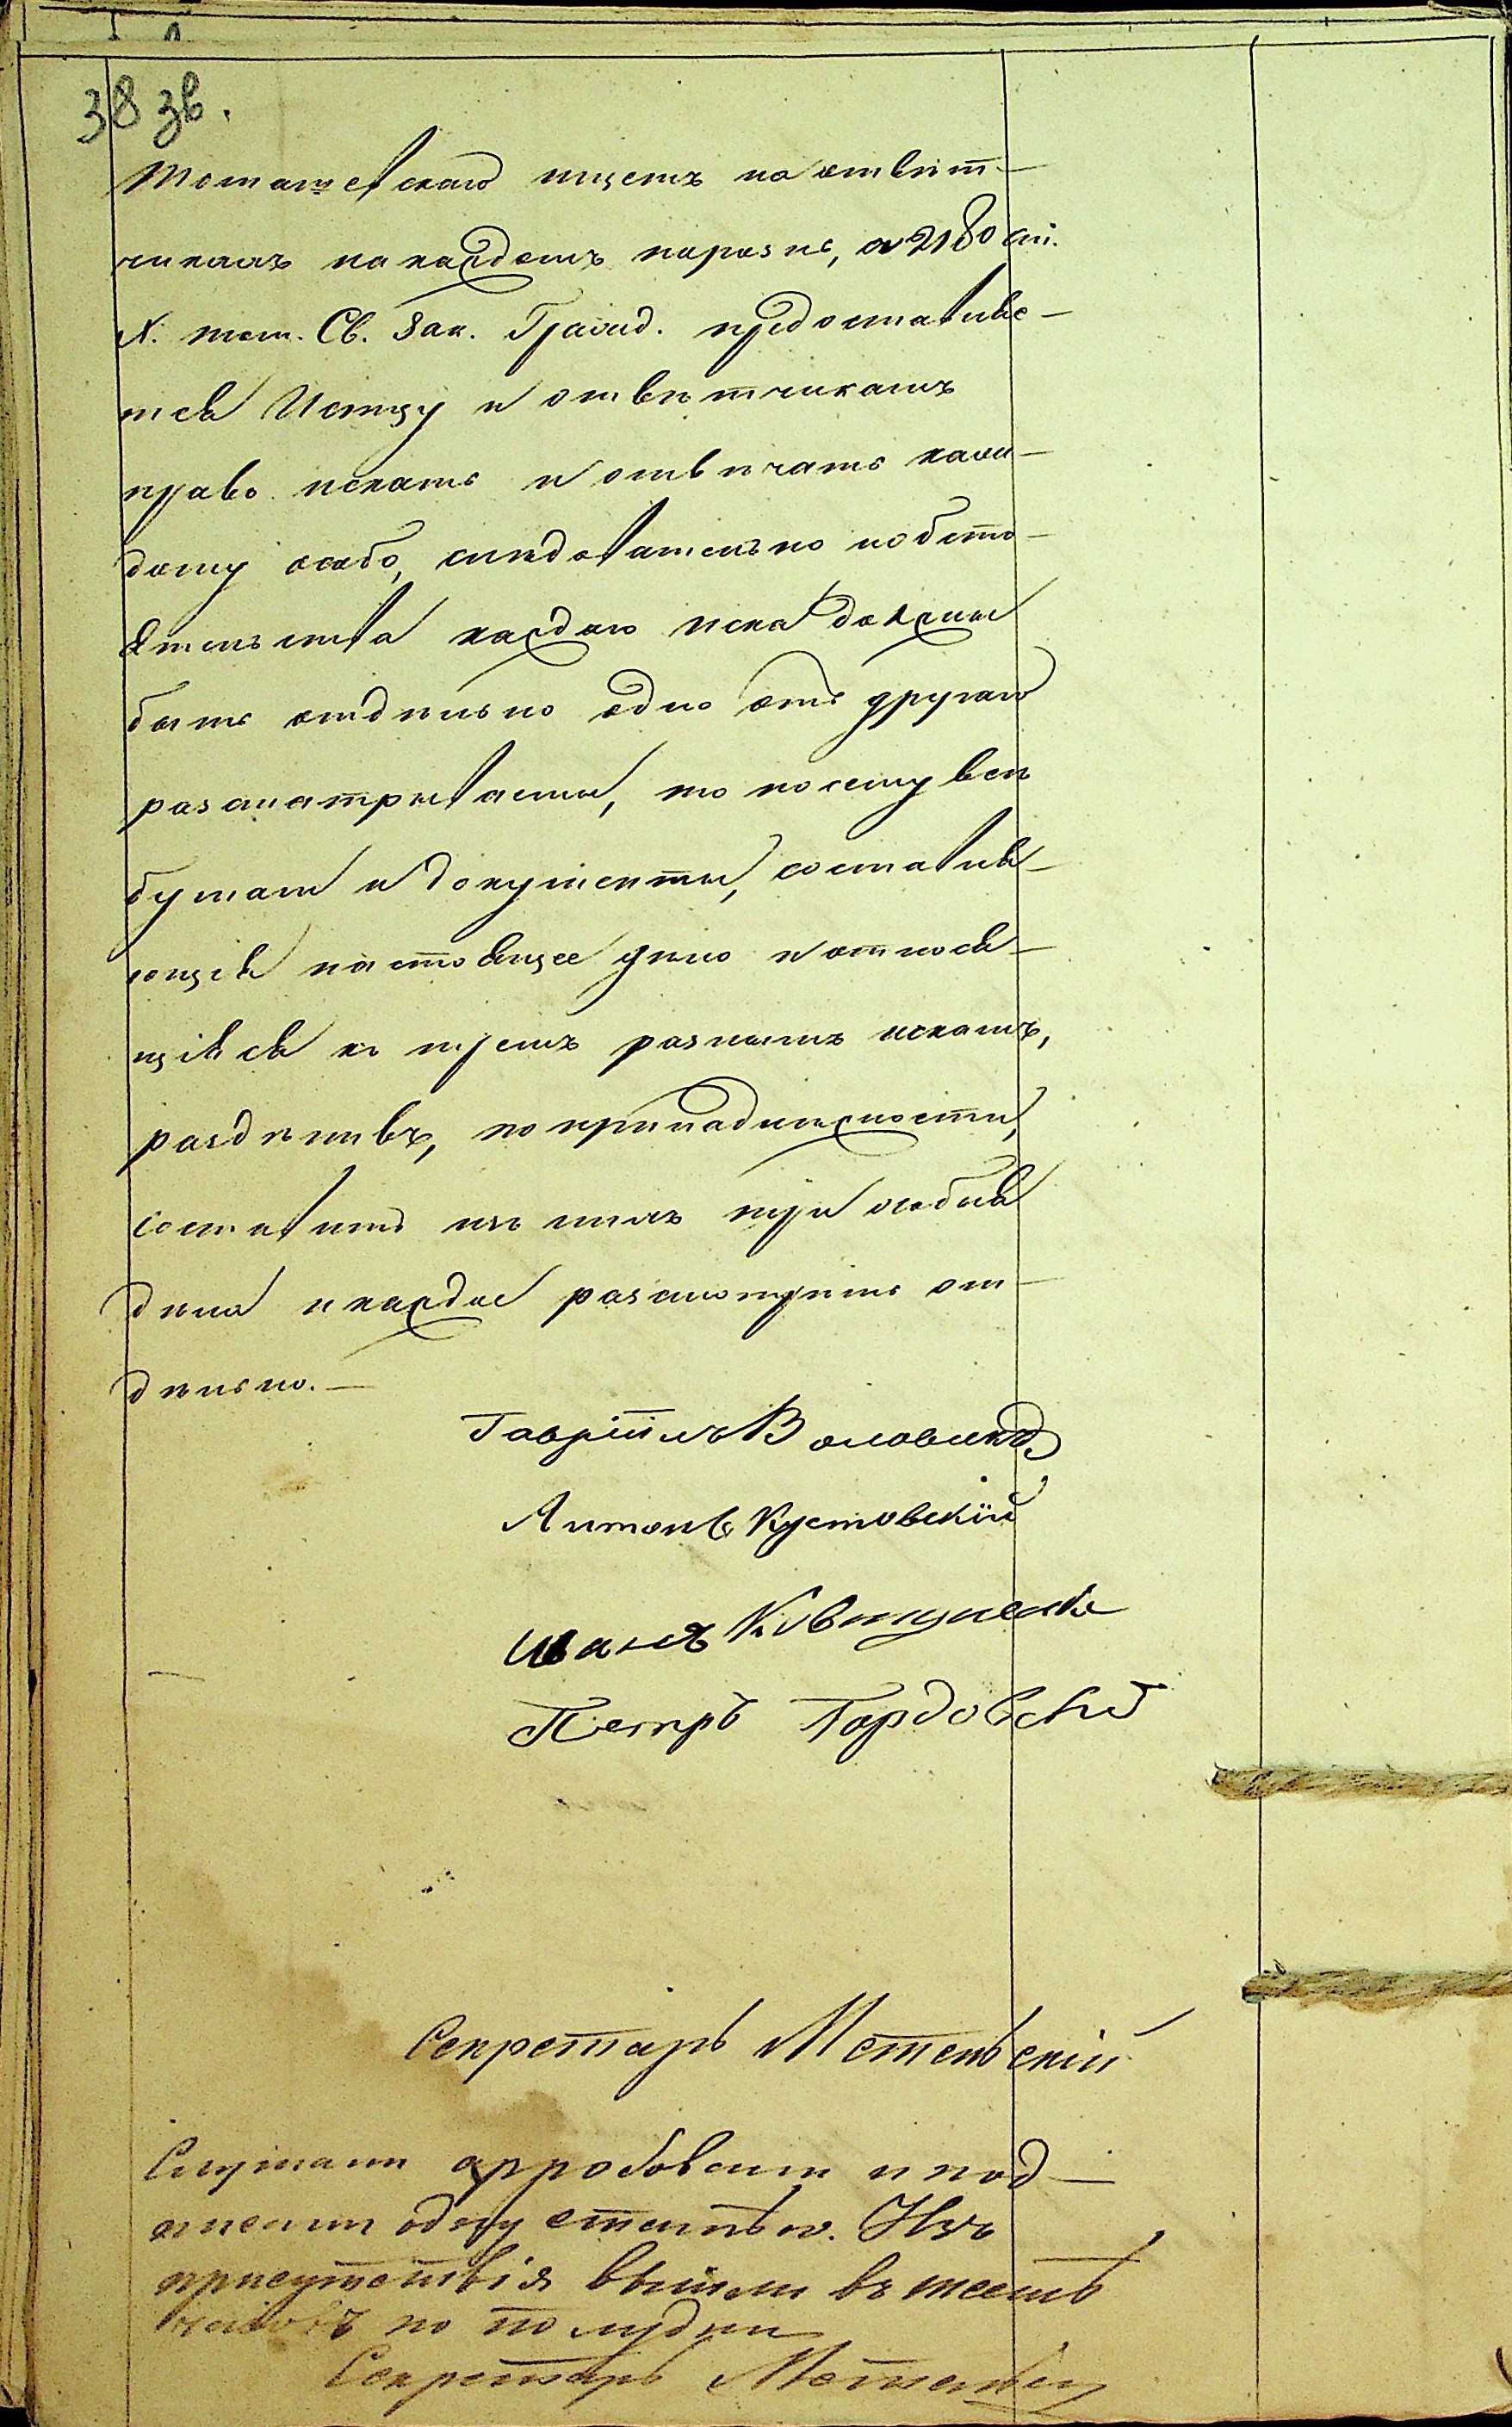 38 зв.
Томашевскаго ищетъ на отвѣт-
чикахъ на каждомъ порознь, а 2180 ст.
X. том. Св. Зак. Гражд. предоставляе-
тся Истцу и отвѣтчикамъ
право искать и отвѣчать каж-
дому особо, слѣдовательно и обсто-
ятельства каждаго иска должны
быть отдѣльно одно отъ другаго
разсматриваемы, то посему всѣ
бумаги и документы, составля-
ющія настоящее дѣло и относя-
щіяся къ тремъ разнымъ искамъ,
раздѣливъ, по принадлежности,
составить изъ нихъ три особыя
дѣла и каждое разсмотрѣть от-
дѣльно.—
Гавріилъ
Антонъ Кустовскій
Иванъ Ковтуненко
Петръ Гордовскій
Секретарь
Слушали апробовали и под-
писали одну статью. Изъ
присутствія вышли въ шесть
часовъ по полудни
Секретарь